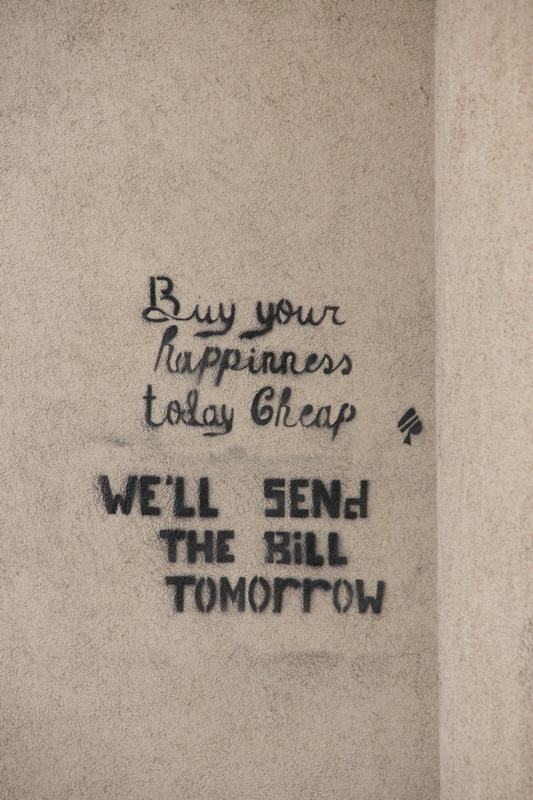 Buy your
happinness
today Cheap
WE'LL SENd
THE BiLL
TOMOrrOW